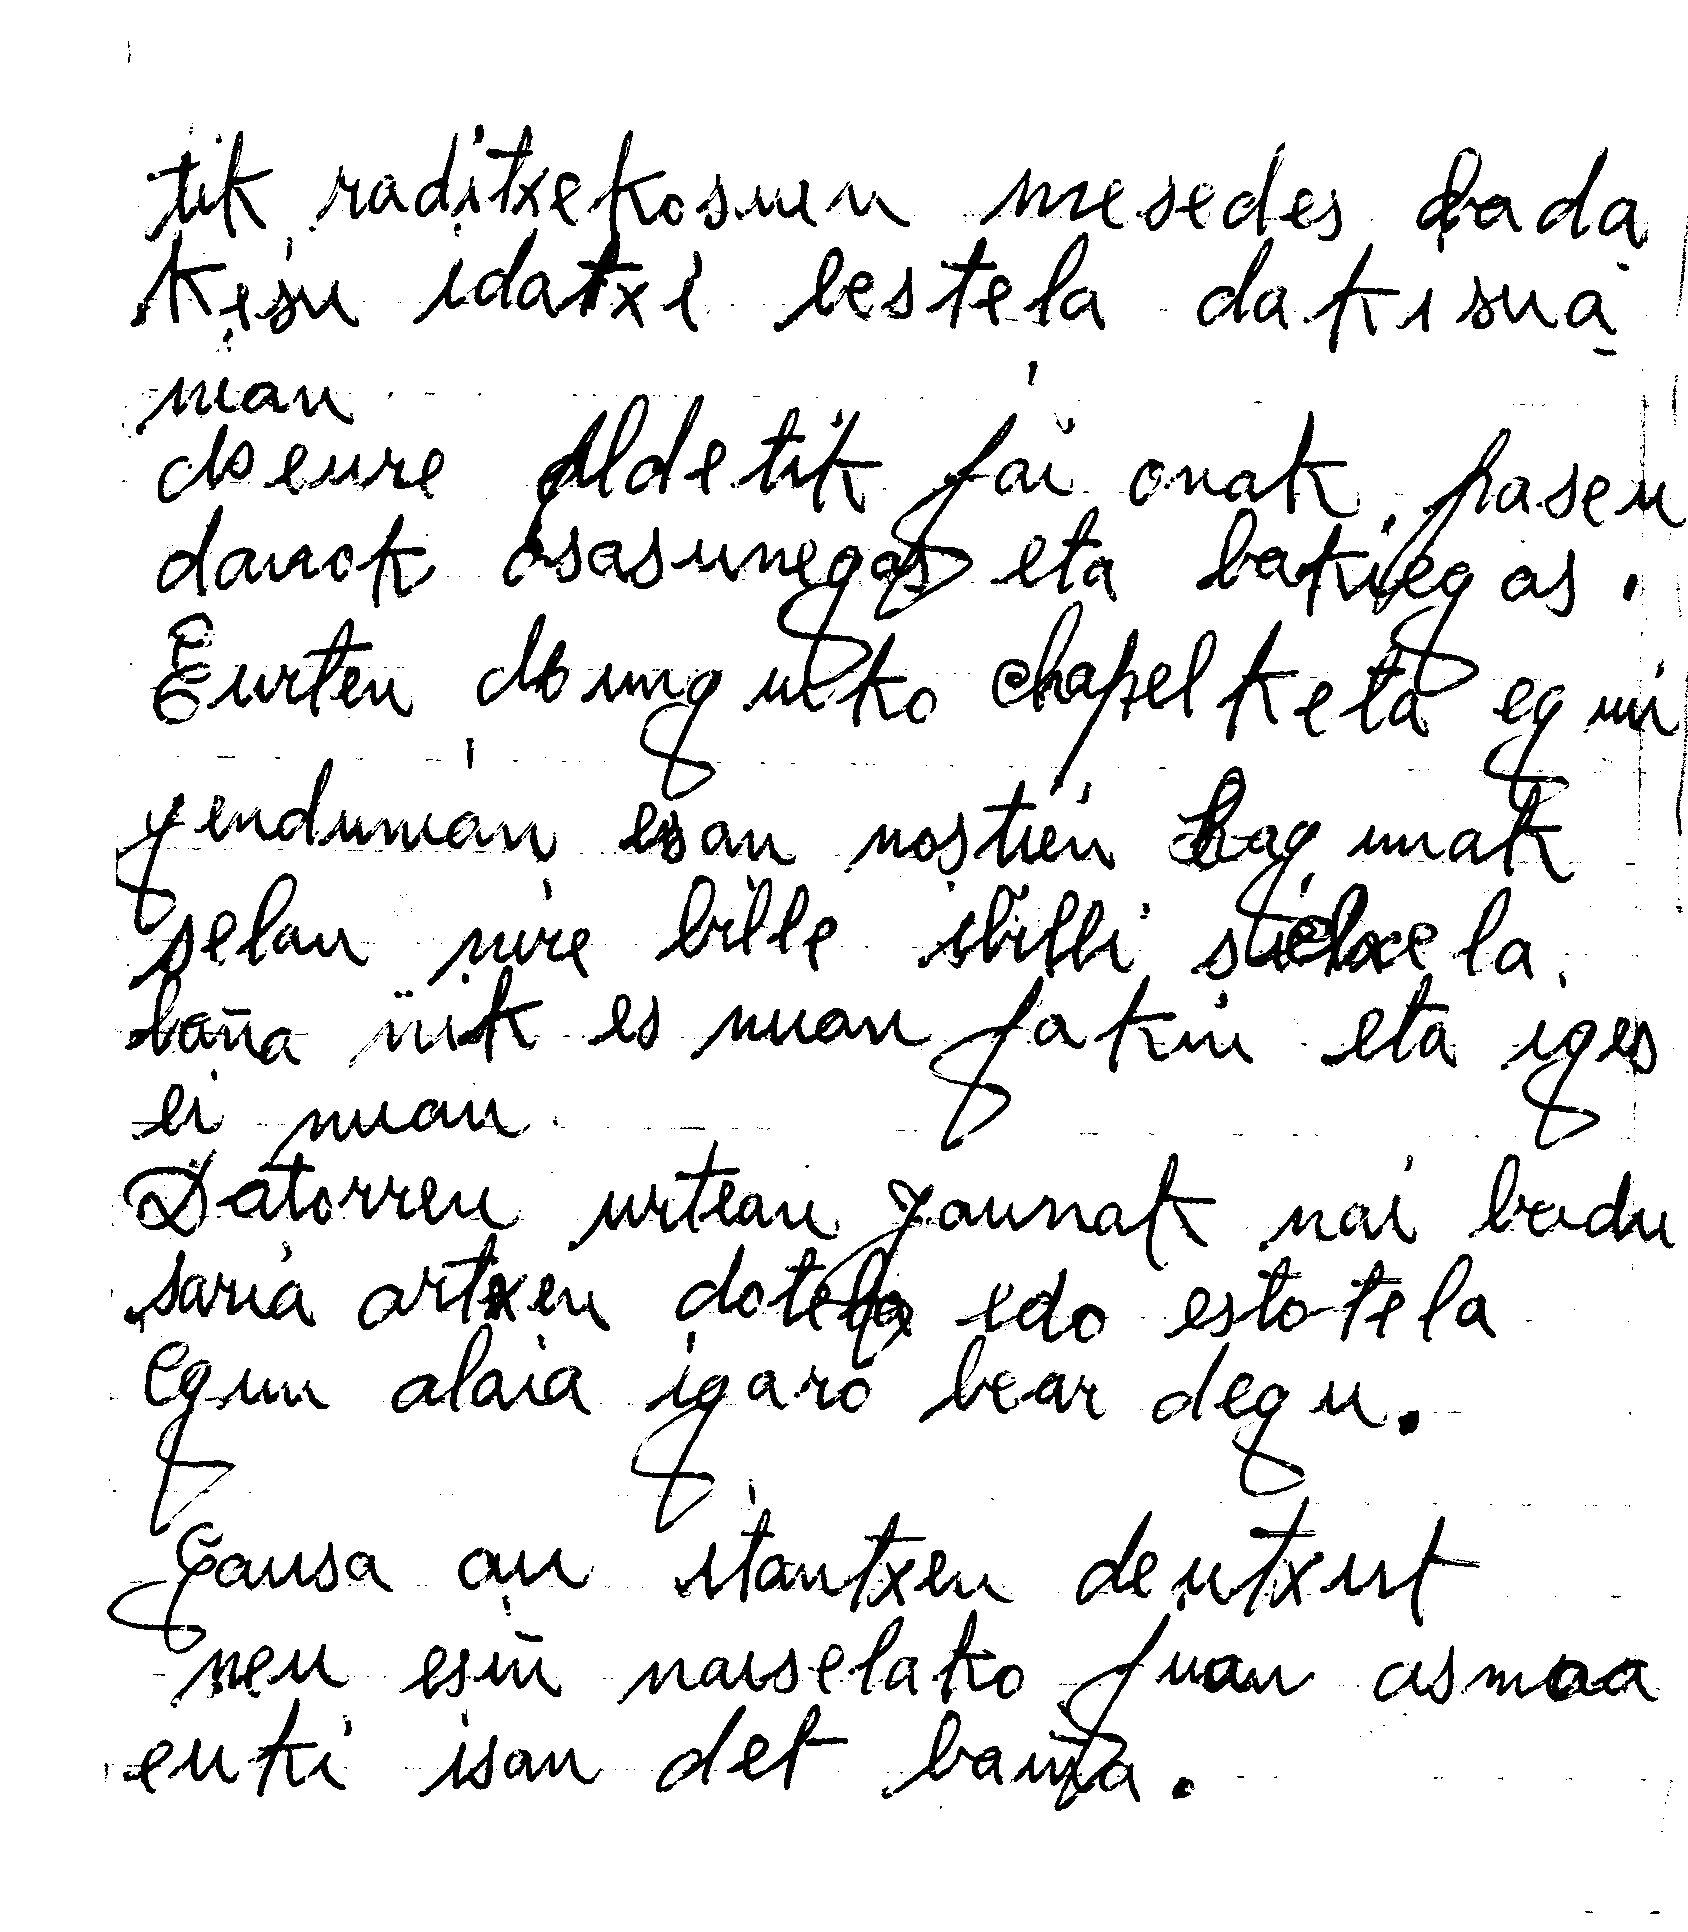 tik raditxekosuen mesedes bada
kisu idatxi bestela dakisua
nian
Geure Aldetik jai onak paseu
dauok osasunegas eta bakiegas.
Eurten Domguiko chapelketa eguin
gendunian esan nostien Lagunak
selan nire bille ibilli siela
baña nik es nuan jakin eta iges
ei nuan
Datorren urtean Jaunak nai badu
saria artxen dotela edo estotela
Egun alaia igaro bear degu.
Gausa au itantxen deutxut
neu esiñ naiselako juan asmoa
euki isan det baña.